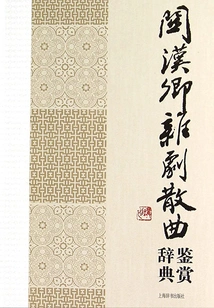 關漢卿雜劇散曲
鉴赏
辞典
上海辞书出版社